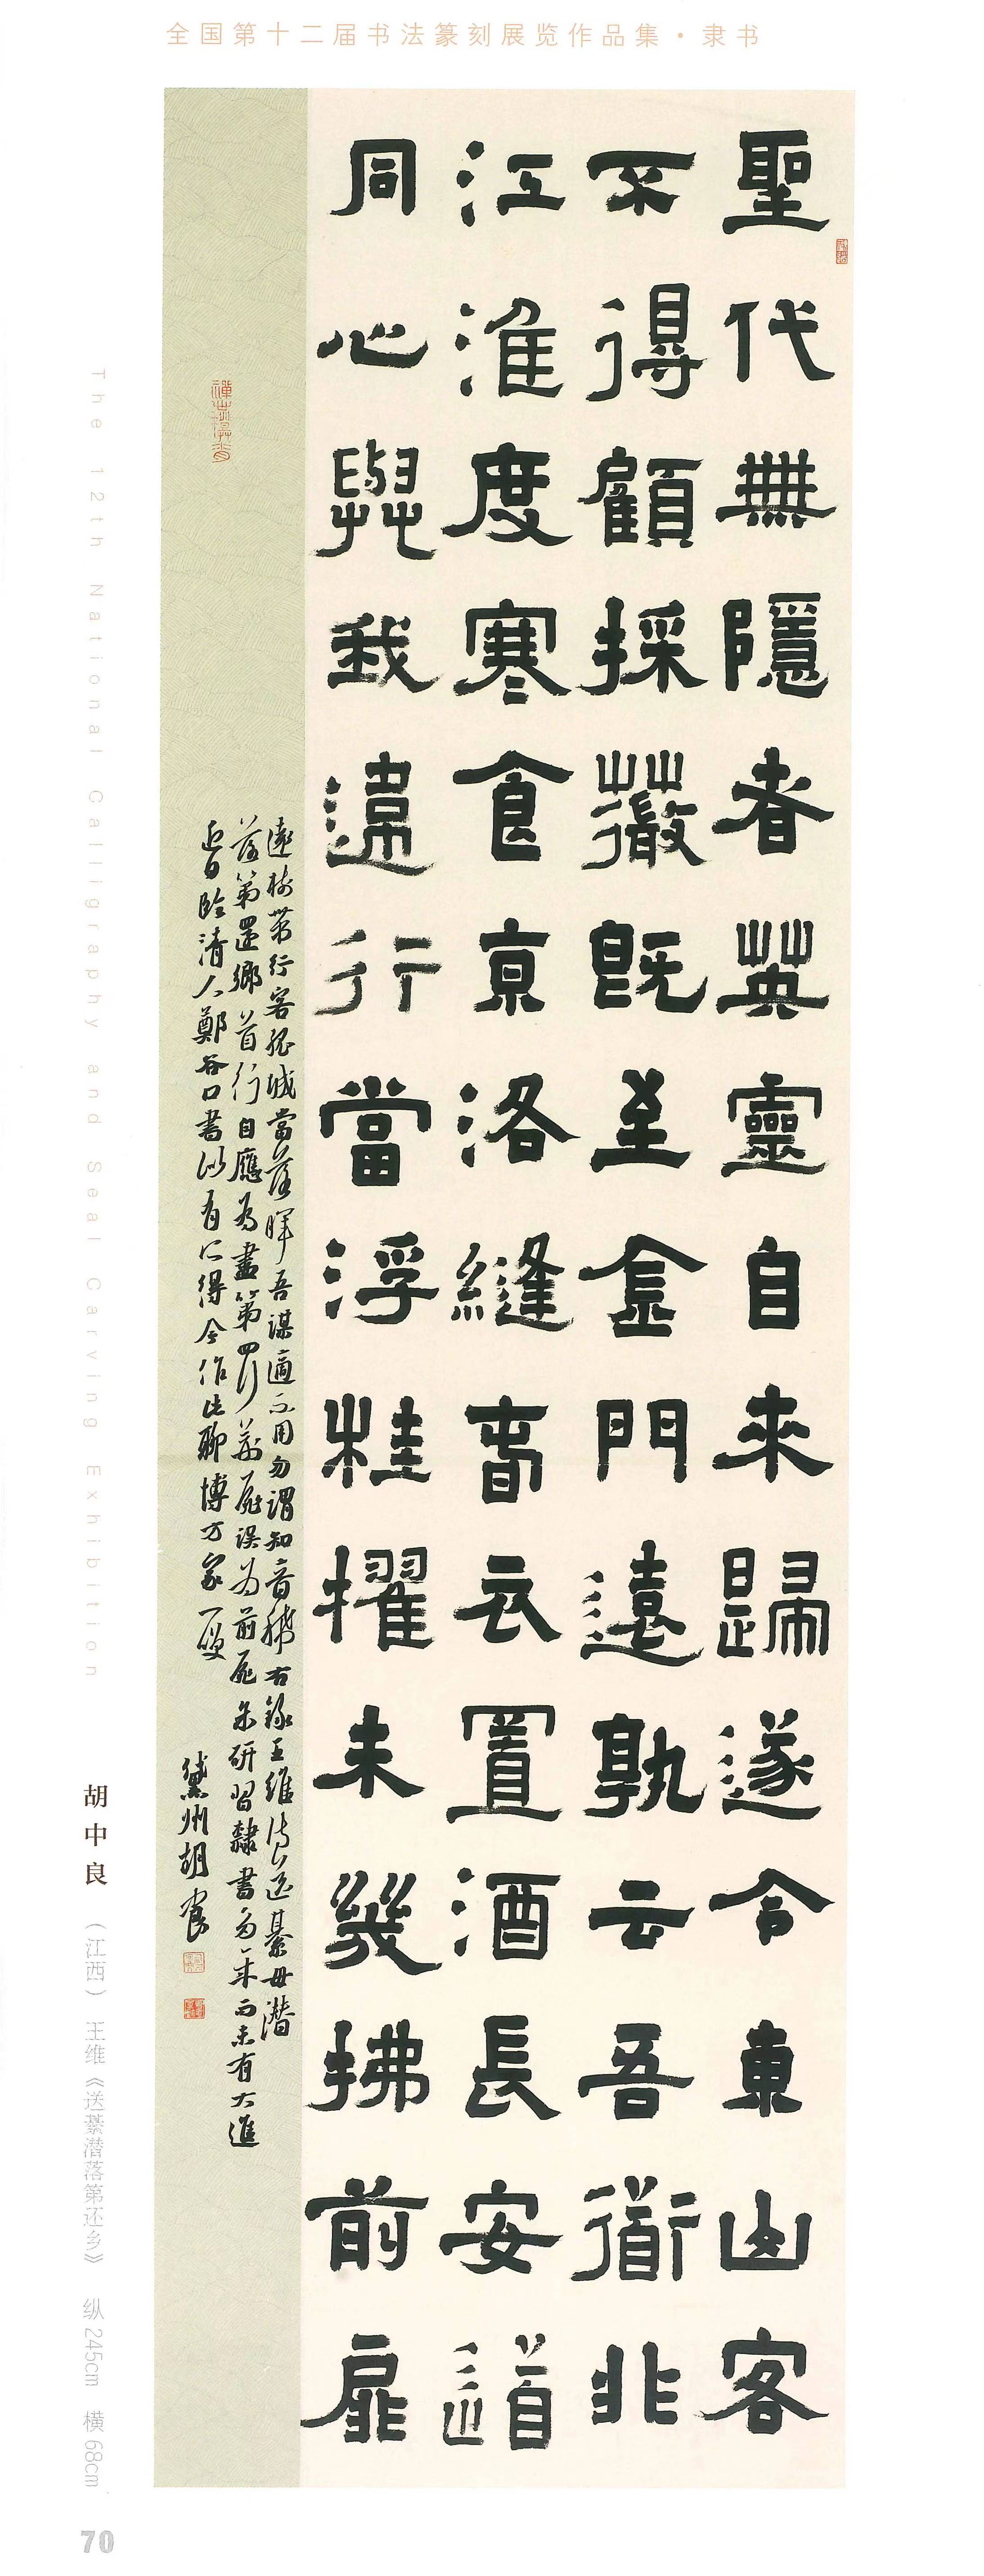 全国第十二届书法篆刻展览作品集·隶书
聖代無隱者英靈自来歸遂令東山客
不得顧採薇既至金門遠孰云吾衜非
江淮度寒食京洛縫春衣置酒長安道
同心與我違行當浮桂擢未幾拂前扉
遠樹帶行客孤城當落暉吾謀適不用勿謂知音稀右錄王維詩送綦毋潛
落第還鄉首行自應為盡第四行荊扉誤為前扉余研習隸書多年而未有大進
近日臨清人鄭谷口書似有所得今作此聊博方家一哂
黛州胡中良
The 12th National Calligraphy and Seal Carving Exhibition
胡中良 (江西) 王维《送綦潜落第还乡》 纵245cm 横68cm
70